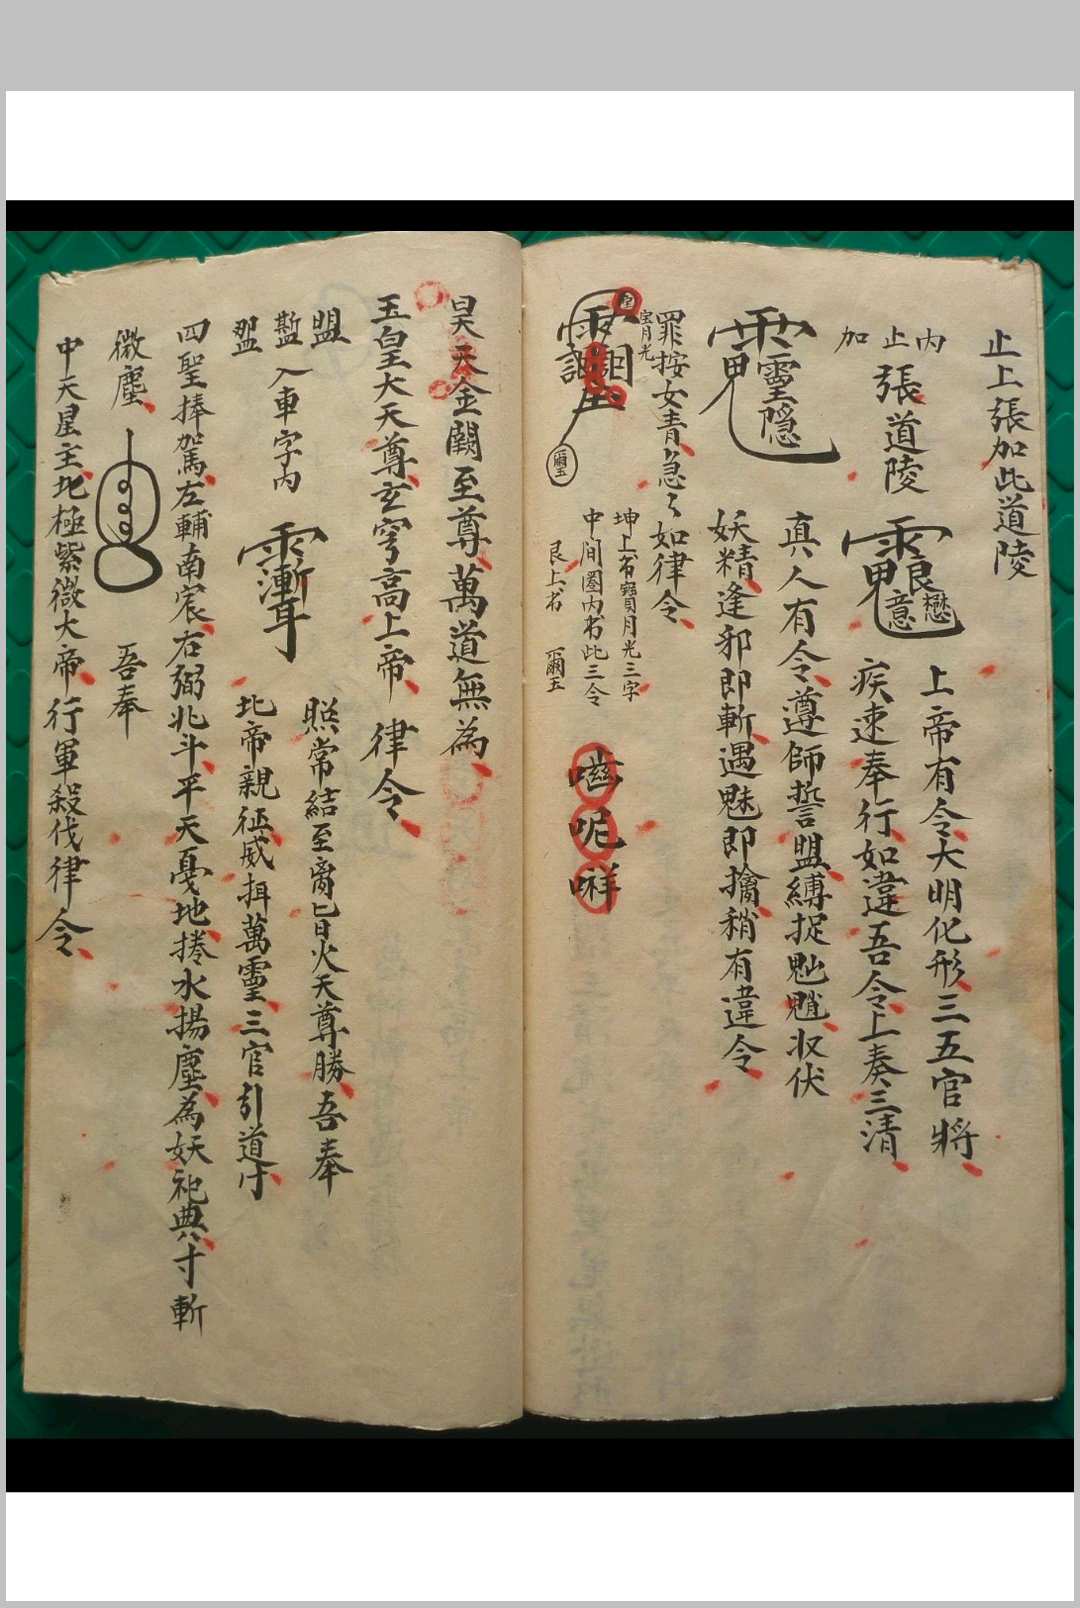 止上張加此道陵
內止加
張道陵
上帝有令大明化形三五官將
疾速奉行如違吾令上奏三清
真人有令遵師誓盟縛捉魈收伏
靈隱
妖精逢邪即斬遇魅即擒稍有違令
罪按女青急々如律令
宝月光
坤上書寶月光三字
中间圈内书此三令
艮上书
嗞呢哶
昊天金闕至尊萬道無為
玉皇大天尊玄穹高上帝 律令
盟
入車字內
照常結至离旨火天尊勝吾奉
北帝親征威揖萬靈三官引道
四聖捧駕左輔南宸右弼北斗平天憂地捲水揚塵為妖祀典寸斬
微塵
吾奉
中天星主北極紫微大帝行軍殺伐律令